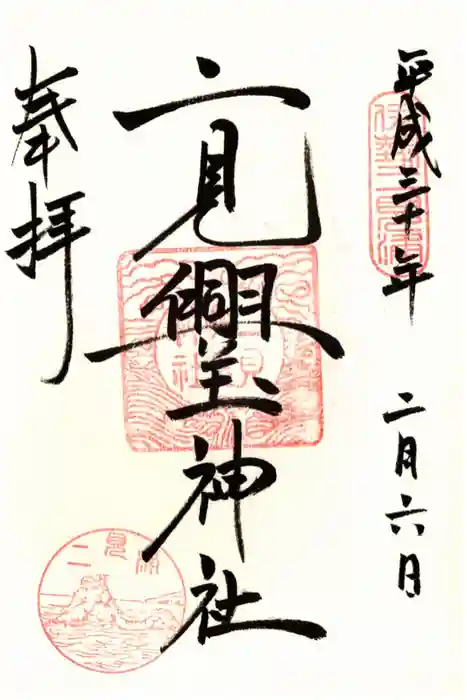 平成三十年 二月六日
二見興玉神社
奉拝
伊勢二見浦
二見浦